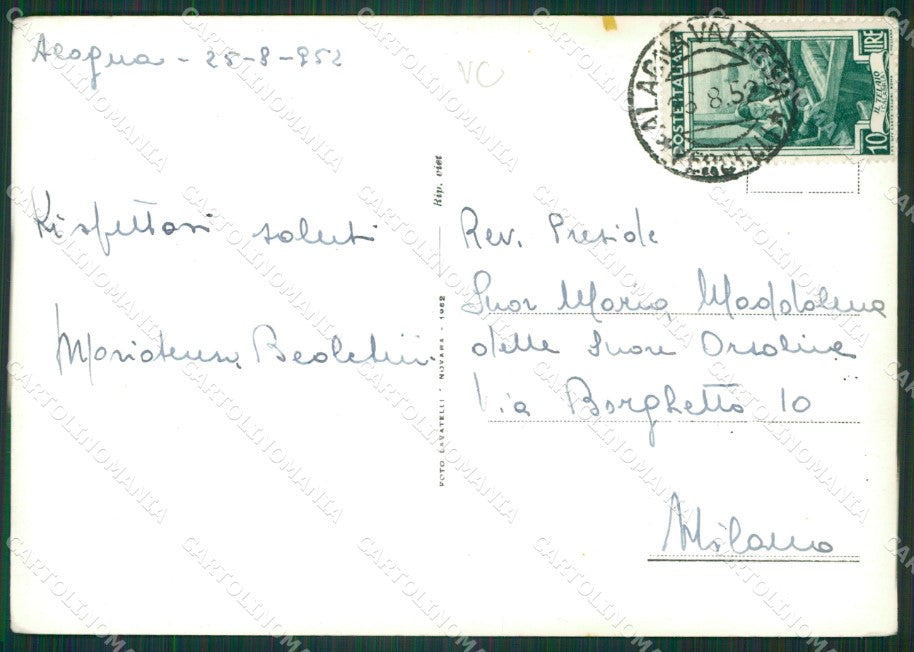 Alagna - 25-8-952
VC
POSTE ITALIANE
10
LIRE
IL TELAIO
ALAGNA VALSESIA
8.52
Rispettosi saluti
Mariateresa Beolchini
Rip. viet
FOTO LAVATELLI - NOVARA - 1952
Rev. Preside
Suor Maria Maddalena
delle Suore Orsoline
Via Borghetto 10
Milano
CARTOLINOMANIA